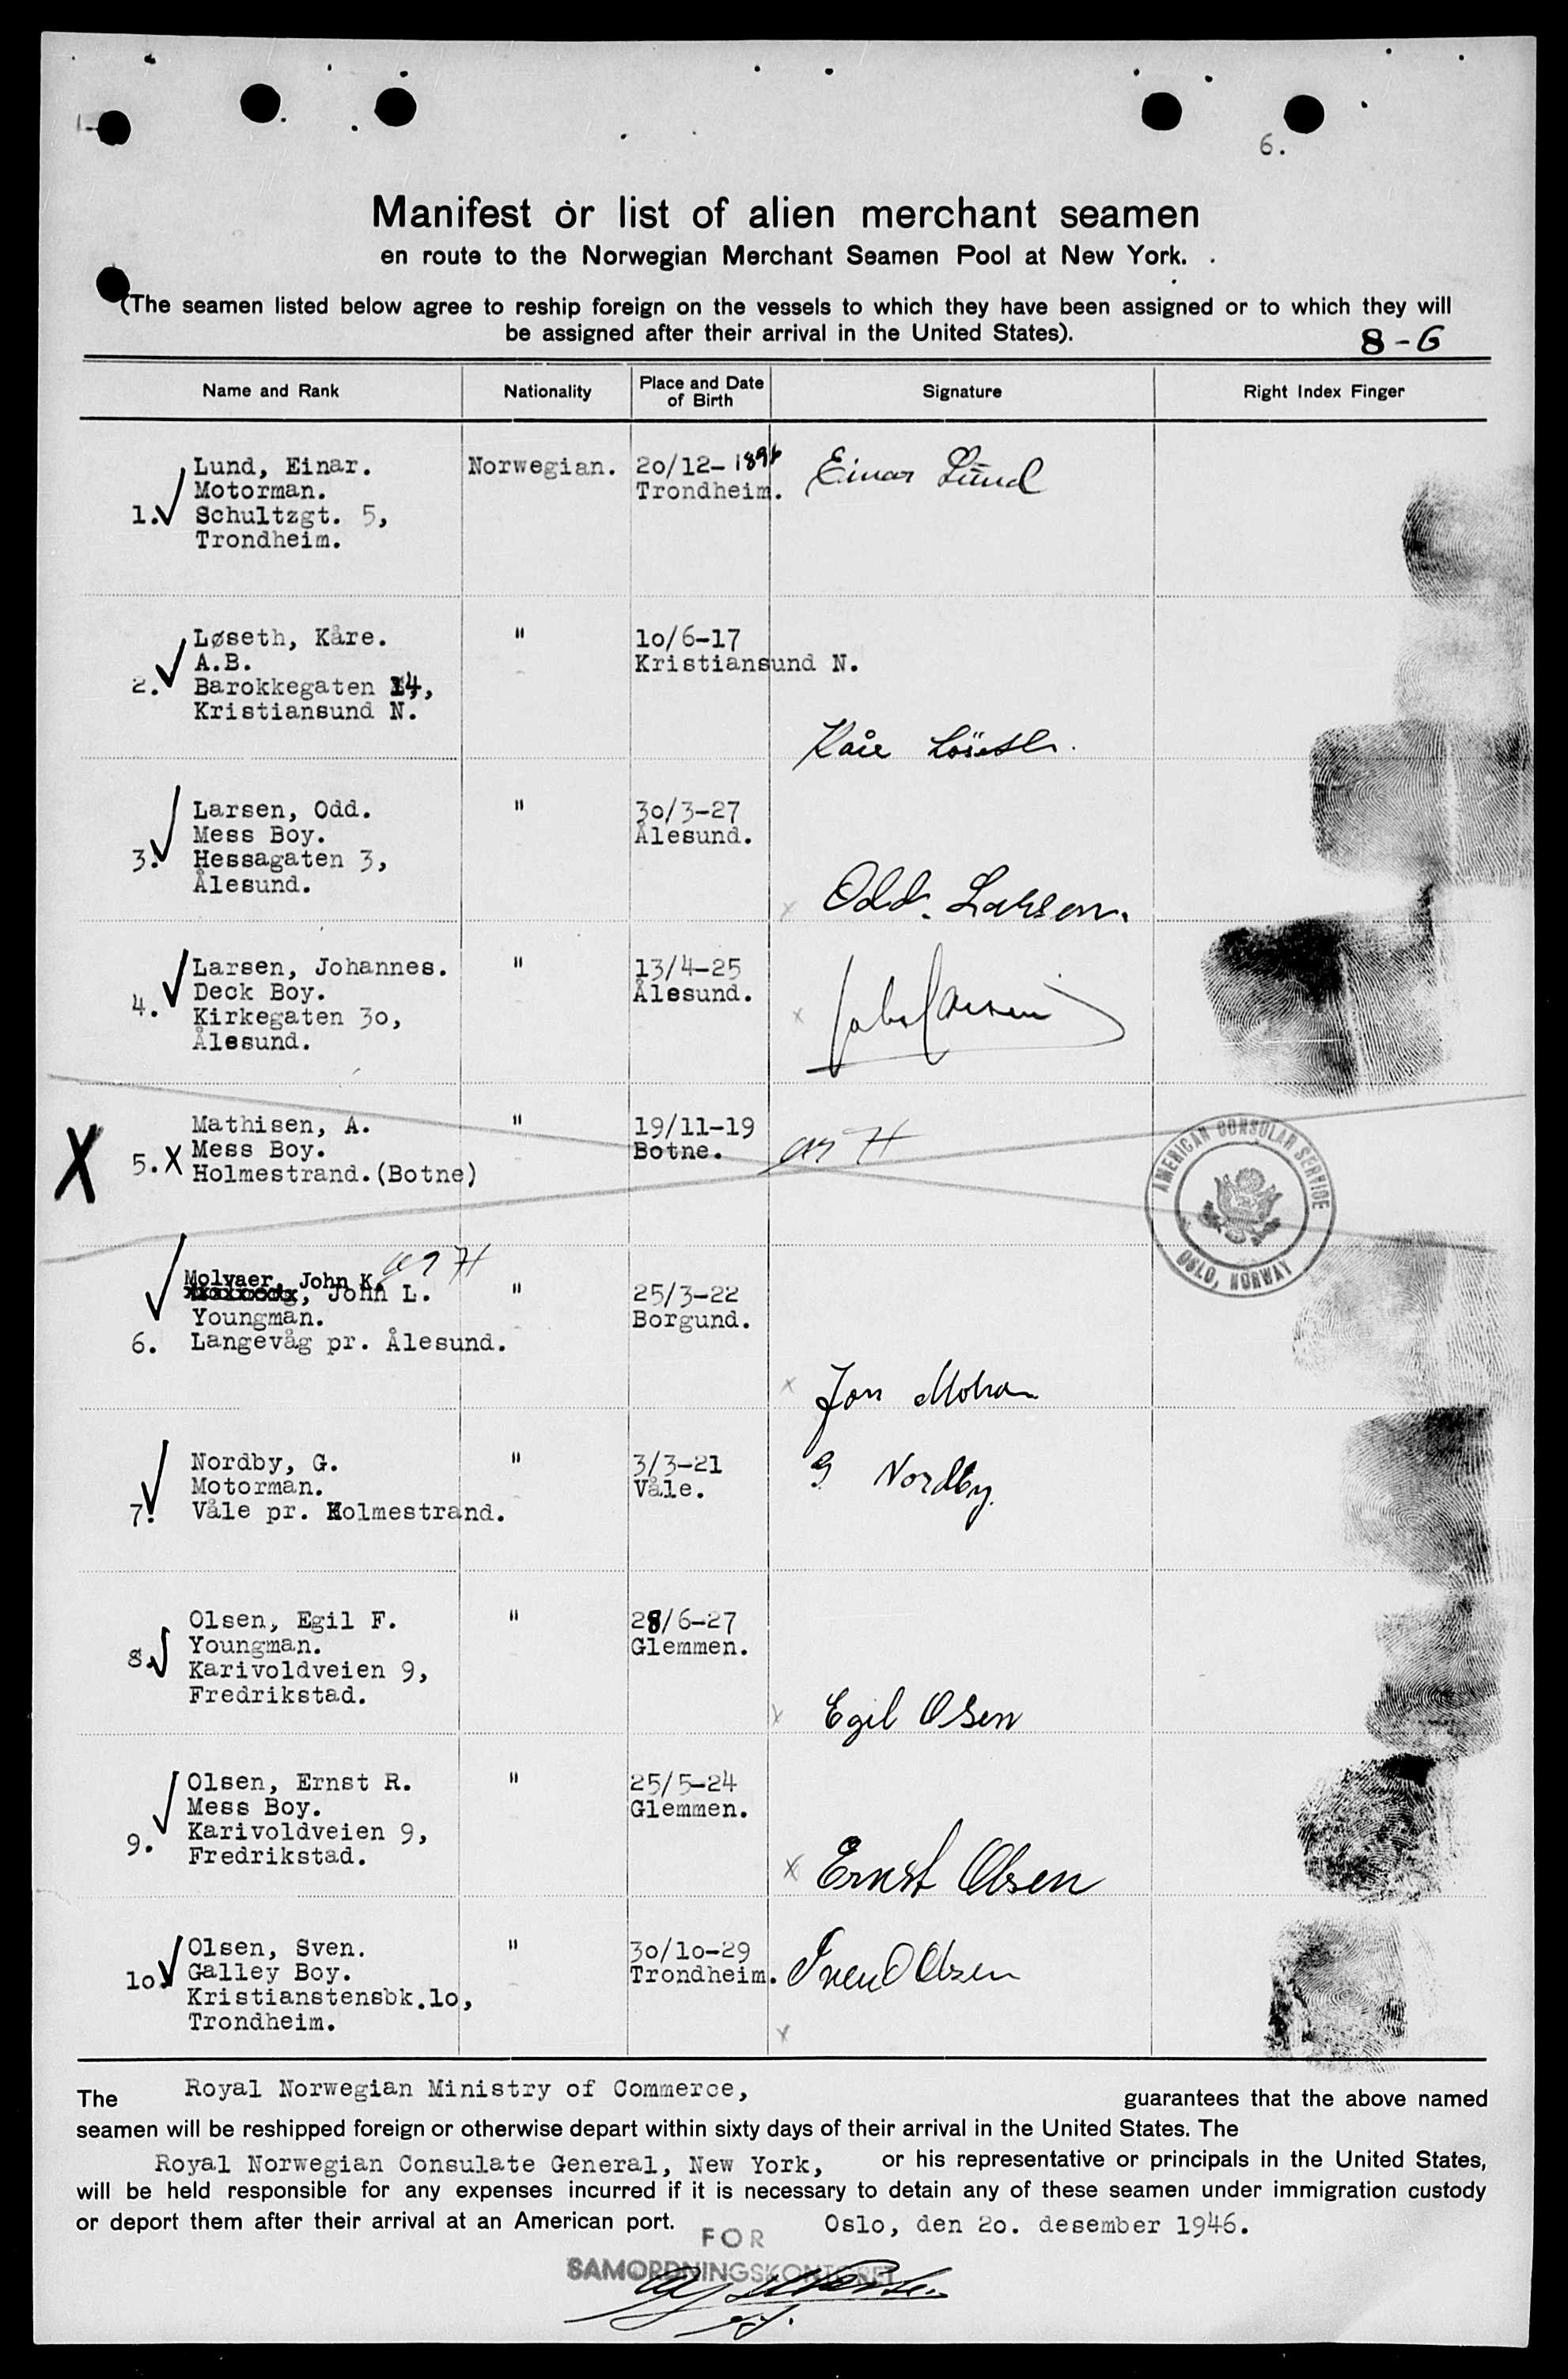 6.
Manifest or list of alien merchant seamen
en route to the Norwegian Merchant Seamen Pool at New York.
(The seamen listed below agree to reship foreign on the vessels to which they have been assigned or to which they will
be assigned after their arrival in the United States).
8-6
Name and Rank Nationality Place and Date of Birth Signature Right Index Finger
Lund, Einar. Norwegian. 20/12-1896 Einar Lund
Motorman. Trondheim.
1. Schultzgt. 5,
Trondheim.
Løseth, Kåre. " 10/6-17
A.B. Kristiansund N.
2. Barokkegaten 14,
Kristiansund N.
Kåre Löseth.
Larsen, Odd. " 30/3-27
Mess Boy. Ålesund.
3. Hessagaten 3,
Ålesund.
x Odd. Larsen.
Larsen, Johannes. " 13/4-25
Deck Boy. Ålesund.
4. Kirkegaten 30, x
Ålesund.
Mathisen, A. " 19/11-19
X 5. X Mess Boy. Botne.
Holmestrand.(Botne)
AMERICAN CONSULAR SERVICE
OSLO, NORWAY
Molvaer, John K.
, John L. " 25/3-22
Youngman. Borgund.
6. Langevåg pr. Ålesund.
x Jon
Nordby, G. " 3/3-21 G Nordby.
Motorman. Våle.
7. Våle pr. Holmestrand.
Olsen, Egil F. " 28/6-27
Youngman. Glemmen.
8. Karivoldveien 9,
Fredrikstad.
x Egil Olsen
Olsen, Ernst R. " 25/5-24
Mess Boy. Glemmen.
9. Karivoldveien 9,
Fredrikstad.
x Ernst Olsen
Olsen, Sven. " 30/10-29 Sven O Olsen
10. Galley Boy. Trondheim.
Kristianstensbk.10,
Trondheim.
x
The Royal Norwegian Ministry of Commerce, guarantees that the above named
seamen will be reshipped foreign or otherwise depart within sixty days of their arrival in the United States. The
Royal Norwegian Consulate General, New York, or his representative or principals in the United States,
will be held responsible for any expenses incurred if it is necessary to detain any of these seamen under immigration custody
or deport them after their arrival at an American port. Oslo, den 20. desember 1946.
FOR
SAMORDNINGSKONTORET